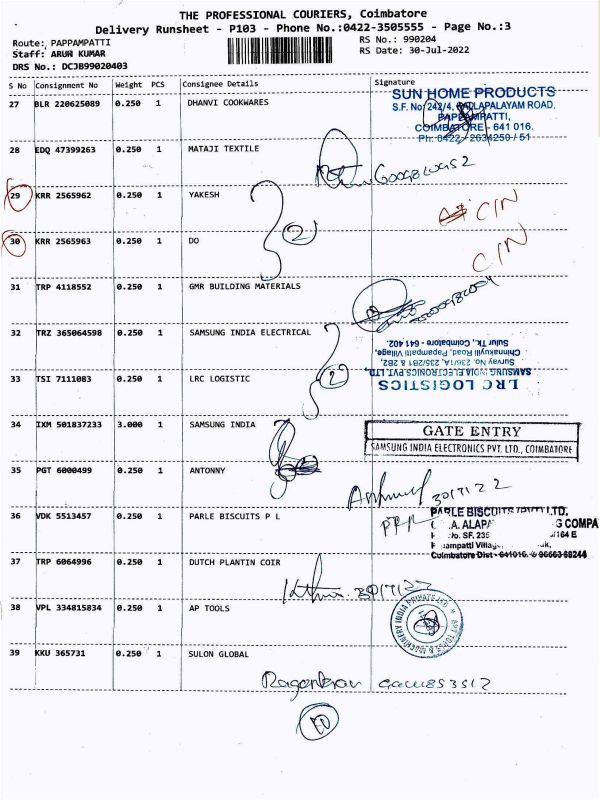 THE PROFESSIONAL COURIERS, Coimbatore
Delivery Runsheet - P103 - Phone No.:0422-3505555 - Page No.:3
Route: PAPPAMPATTI
RS No.: 990204
Staff: ARUR KUMAR
RS Date: 30-Jul-2022
DRS No.: DCJB99020403
S No Consignment No Weight PCS Consignee Details Signature
27 BLR 220625089 0.250 1 DHANVI COOKWARES
SUN HOME PRODUCTS
S.F. No: 242/4, PALLAPALAYAM ROAD,
PAPPAMPATTI,
COIMBATORE - 641 016.
Ph: 0422 - 2634250 / 51
28 EDQ 47399263 0.250 1 MATAJI TEXTILE
29 KRR 2565962 0.250 1 YAKESH
CIN
2
30 KRR 2565963 0.250 1 DO
CIN
31 TRP 4118552 0.250 1 GMR BUILDING MATERIALS
32 TRZ 365064598 0.250 1 SAMSUNG INDIA ELECTRICAL
33 TSI 7111083 0.250 1 LRC LOGISTIC
2
LRC LOGISTICS
SAMSUNG INDIA ELECTRONICS PVT. LTD.,
Survey No. 236/1A, 235/2B1 & 2B2,
Chinnakuyili Road, Papampatti Village,
Sulur TK., Coimbatore - 641 402.
34 IXM 501837233 3.000 1 SAMSUNG INDIA
GATE ENTRY
SAMSUNG INDIA ELECTRONICS PVT. LTD., COIMBATORE
35 PGT 6000499 0.250 1 ANTONNY
30/7/22
36 VDK 5513457 0.250 1 PARLE BISCUITS P L
PARLE BISCUITS (PVT) LTD.
Coimbatore Dist - 641016.
37 TRP 6064996 0.250 1 DUTCH PLANTIN COIR
38 VPL 334815834 0.250 1 AP TOOLS
39 KKU 365731 0.250 1 SULON GLOBAL